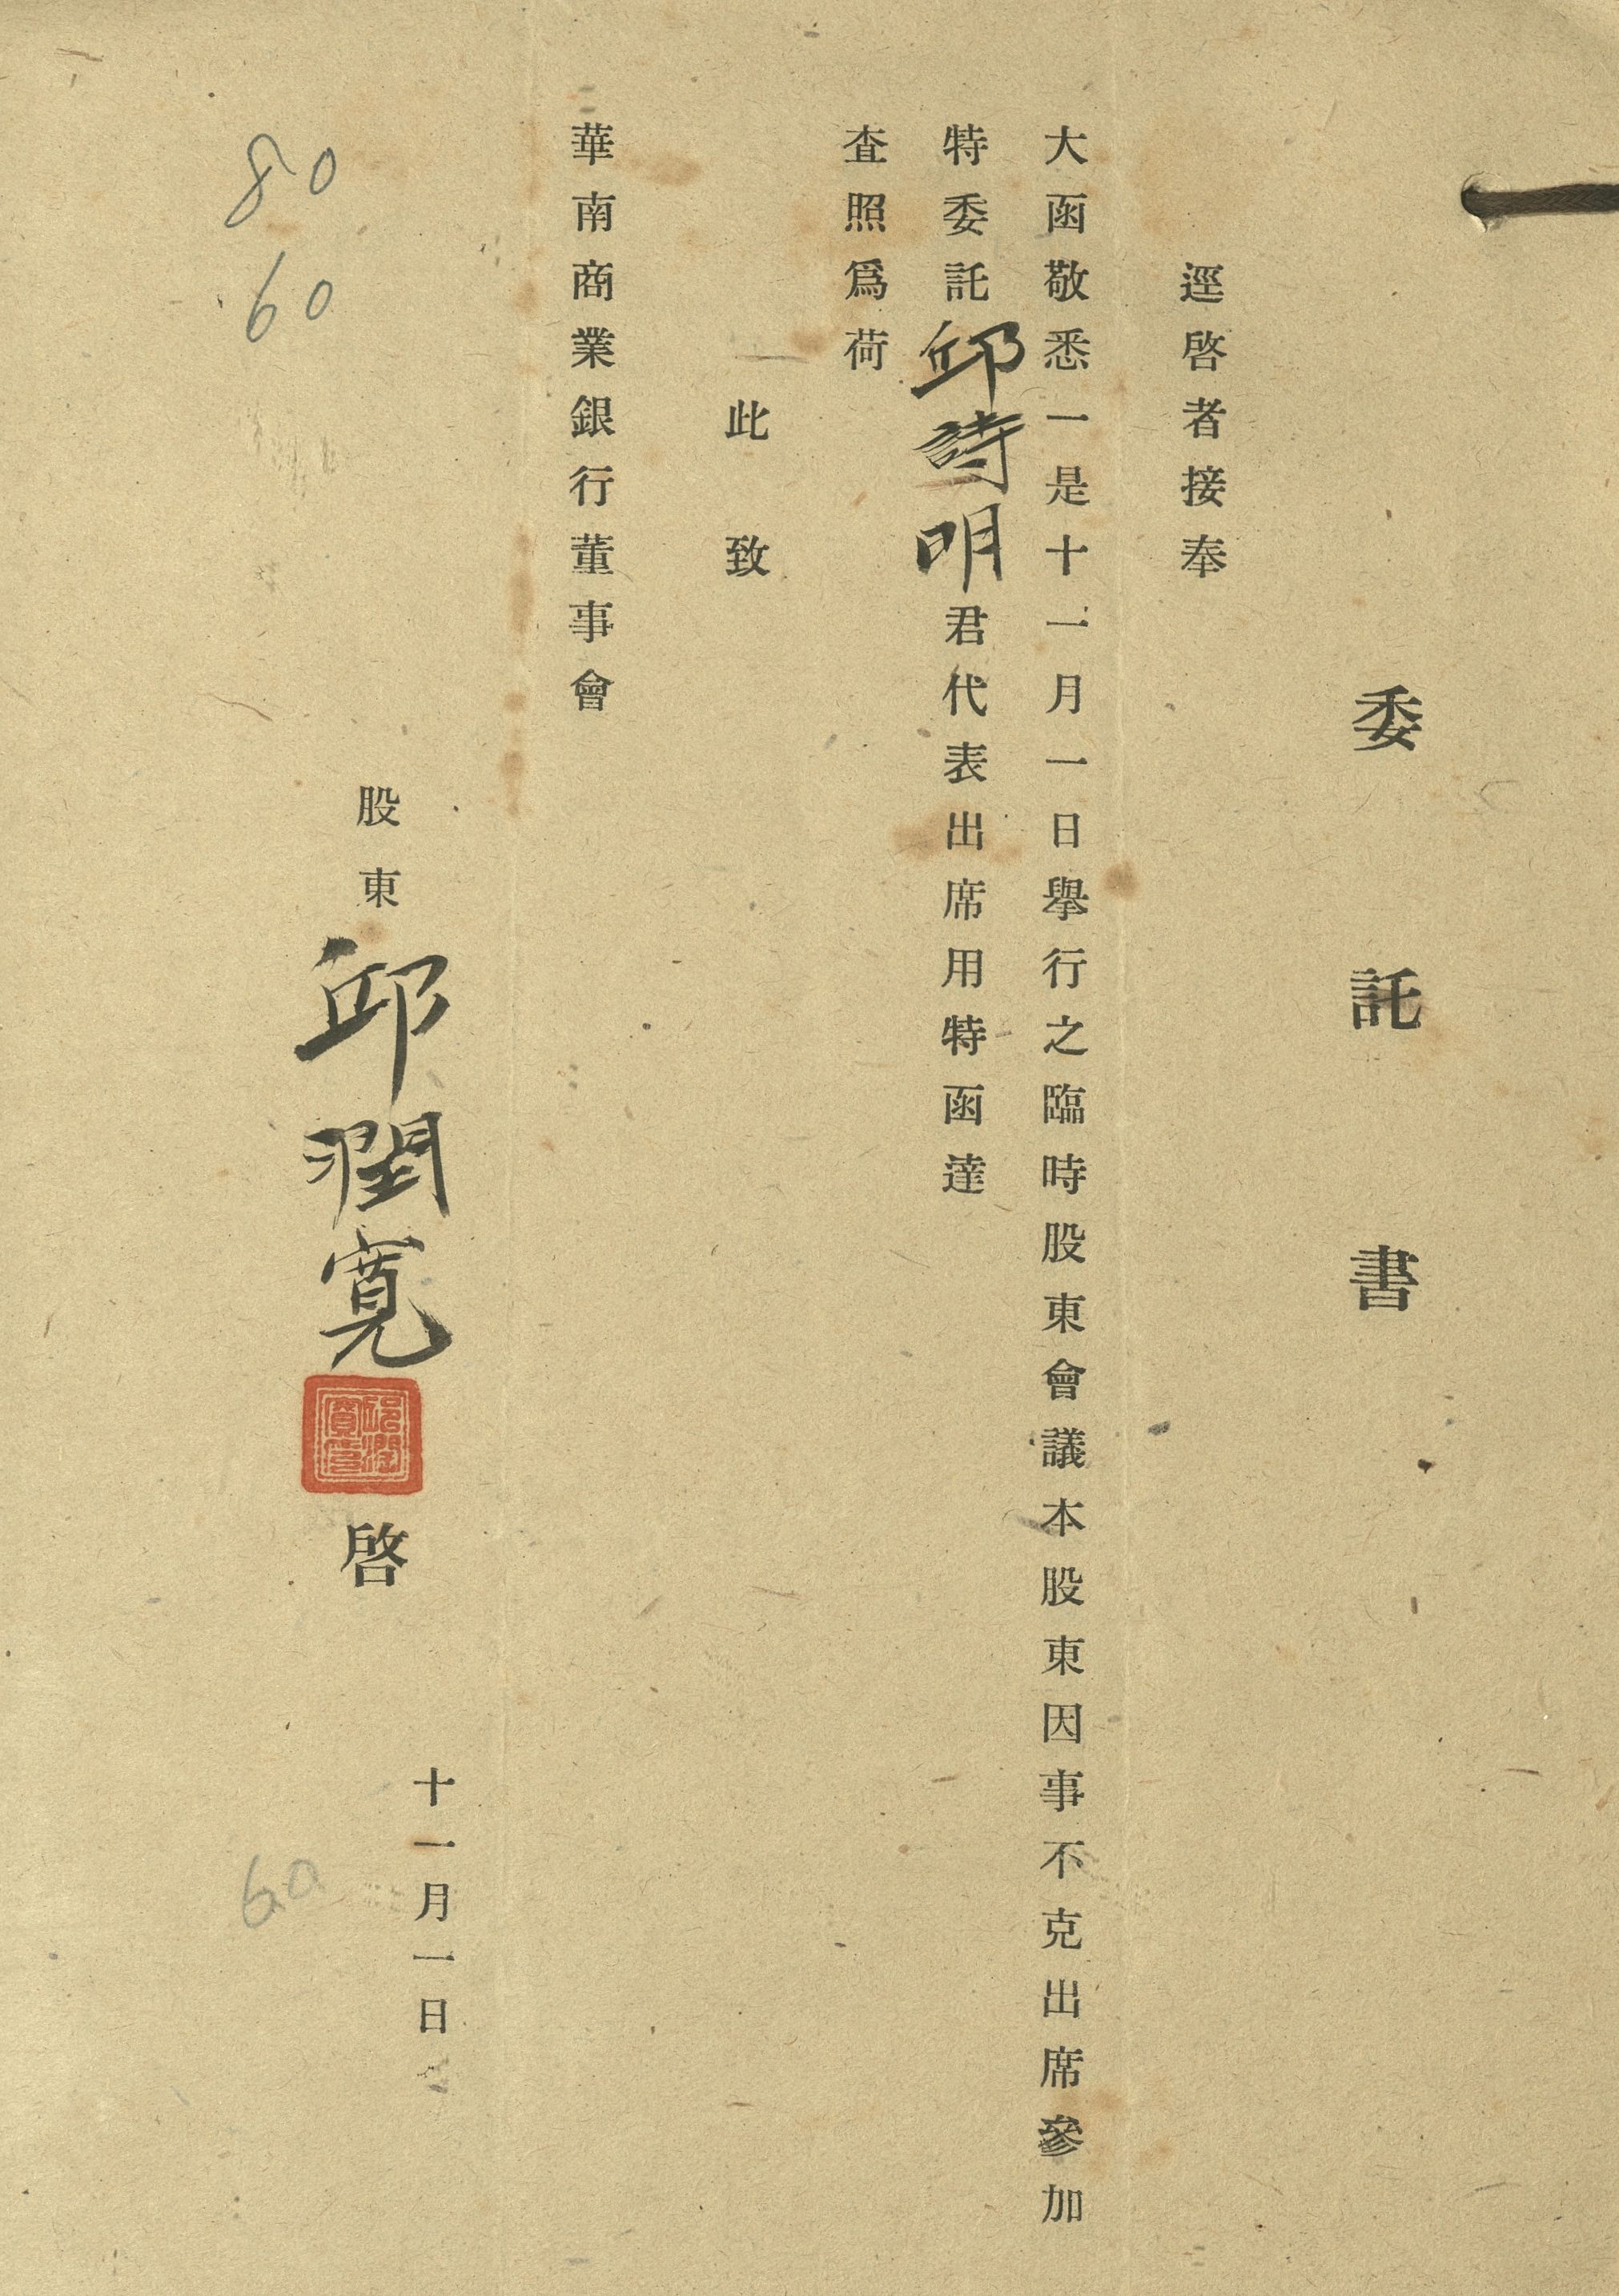 委託書
逕啓者接奉
大函敬悉一是十一月一日擧行之臨時股東會議本股東因事不克出席參加
特委託邱詩明君代表出席用特函達
查照爲荷
此致
華南商業銀行董事會
十一月一日
股東邱潤寬啓
邱潤
寬印
80
60
60